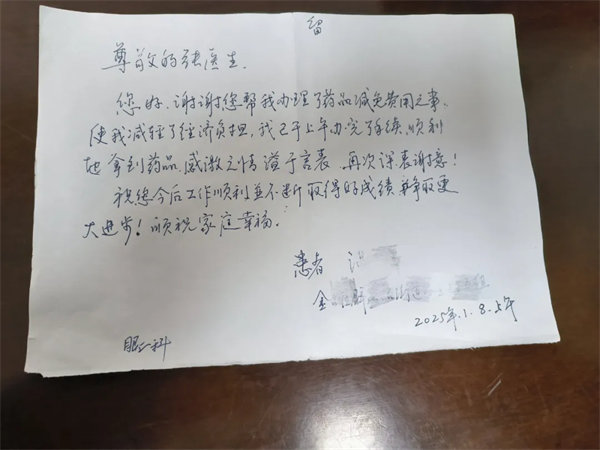 留
尊敬的张医生.
您好.谢谢您帮我办理了药品减免费用之事.
使我减轻了经济负担,我已于上午办完了手续.顺利
地拿到药品,感激之情溢于言表.再次深表谢意!
祝您今后工作顺利並不断取得好成绩争取更
大进步!顺祝家庭幸福.
患者
金
2025年.1.8.上午
眼一科